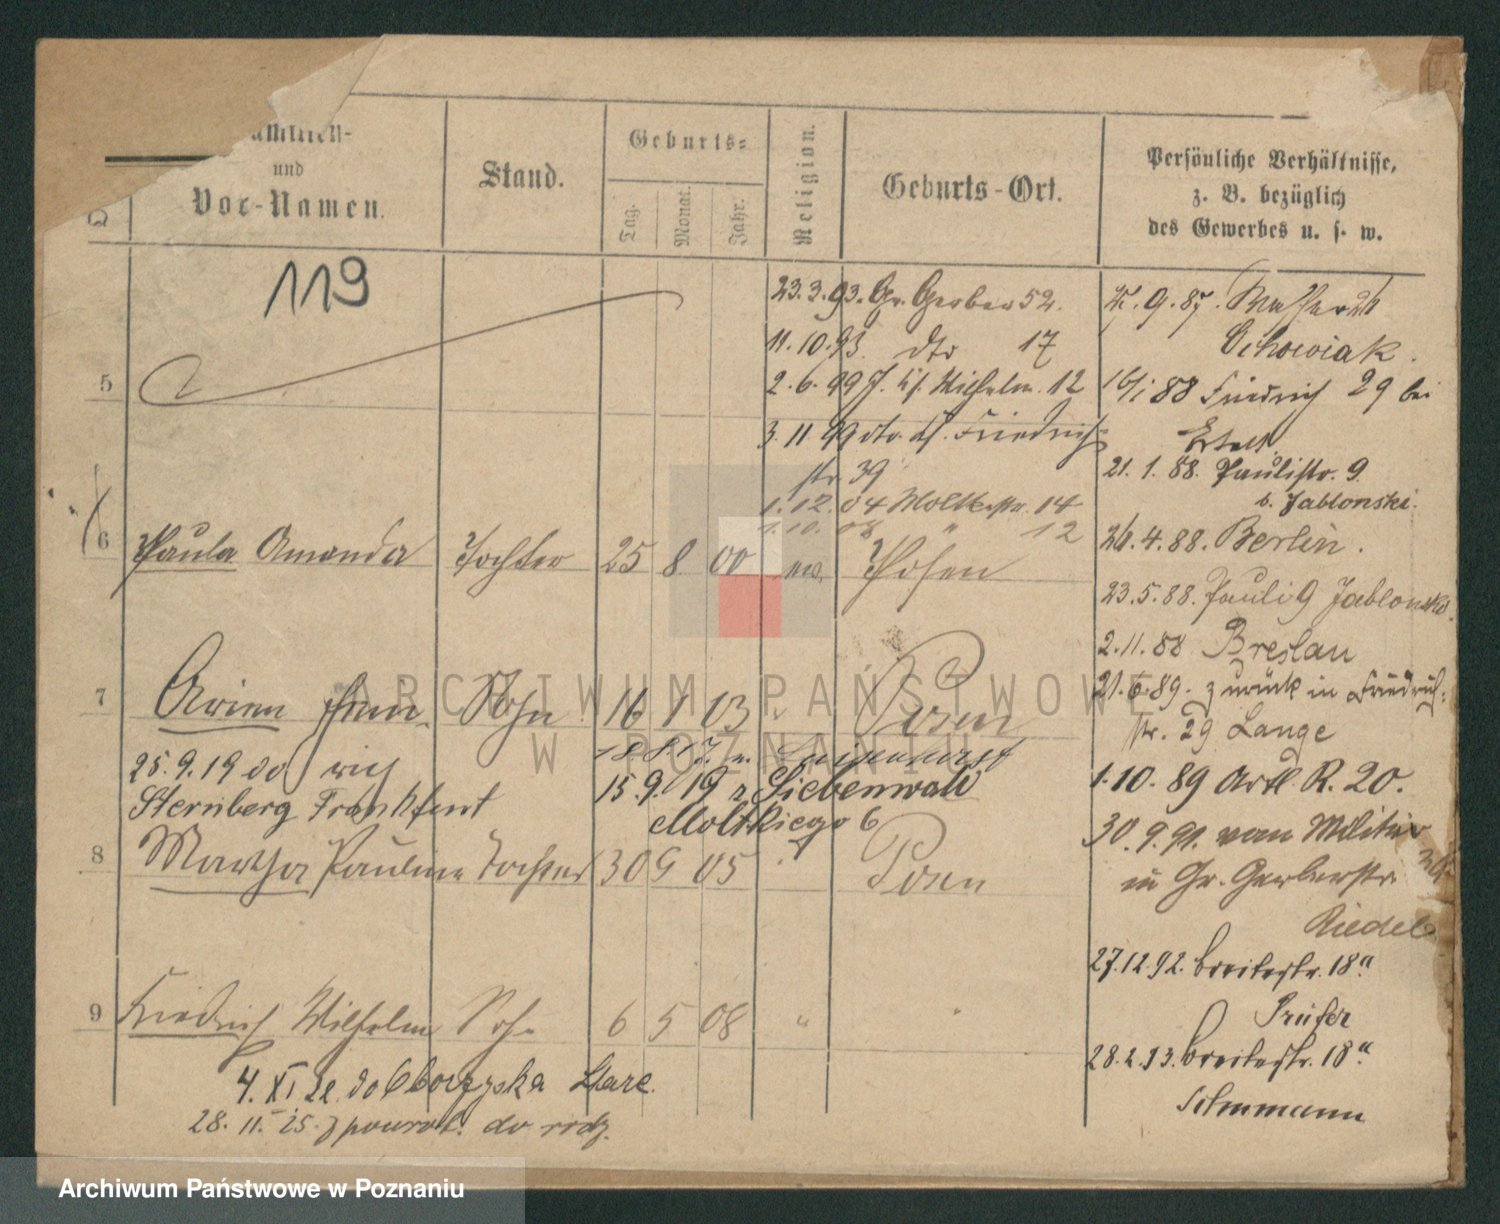 und
Vor-Namen.
Stand.
Geburts-
Tag.
Monat.
Jahr.
Religion.
Geburts-Ort.
Persönliche Verhältnisse,
z. B. bezüglich
des Gewerbes u. s. w.
119
5
23.3.93. Gr. Gerber 52.
11.10.93. dto 17
2.6.99 Wilhelm. 12
3.11.99 dto Friedrich-
str. 39
1.12.04 Moltkestr. 14
1.10.08 " 12
6 Paula Amanda Tochter 25 8 00 ev. Posen
7 Sohn 16 1 03 Posen
25.9.19 do
Sternberg Frankfurt
15.9.19 z Siebenwald
Moltkiego 6
8 Martha Pauline Tochter 30 9 05 Posen
9 Friedrich Wilhelm Sohn 6 5 08 "
4. XI 22. do Oborzyska Stare.
28. 11. 25. z powrot. do rodz.
9.87. Wasserstr
16/1 88 Friedrich 29 bei
21. 1. 88. Paulistr. 9
b. Jablonski.
26.4.88. Berlin.
23.5.88. Pauli 9 Jablonski.
2.11.88 Breslau
21.6.89. zurück in Friedrich-
str. 29 Lange
1.10.89 Artl. R. 20.
30.9.91. vom Militär
in Gr. Gerberstr.
Riedel
27.12.92. Breitestr. 18a
Prüfer
28.2.93. Breitestr. 18a
ARCHIWUM PAŃSTWOWE
W POZNANIU
Archiwum Państwowe w Poznaniu